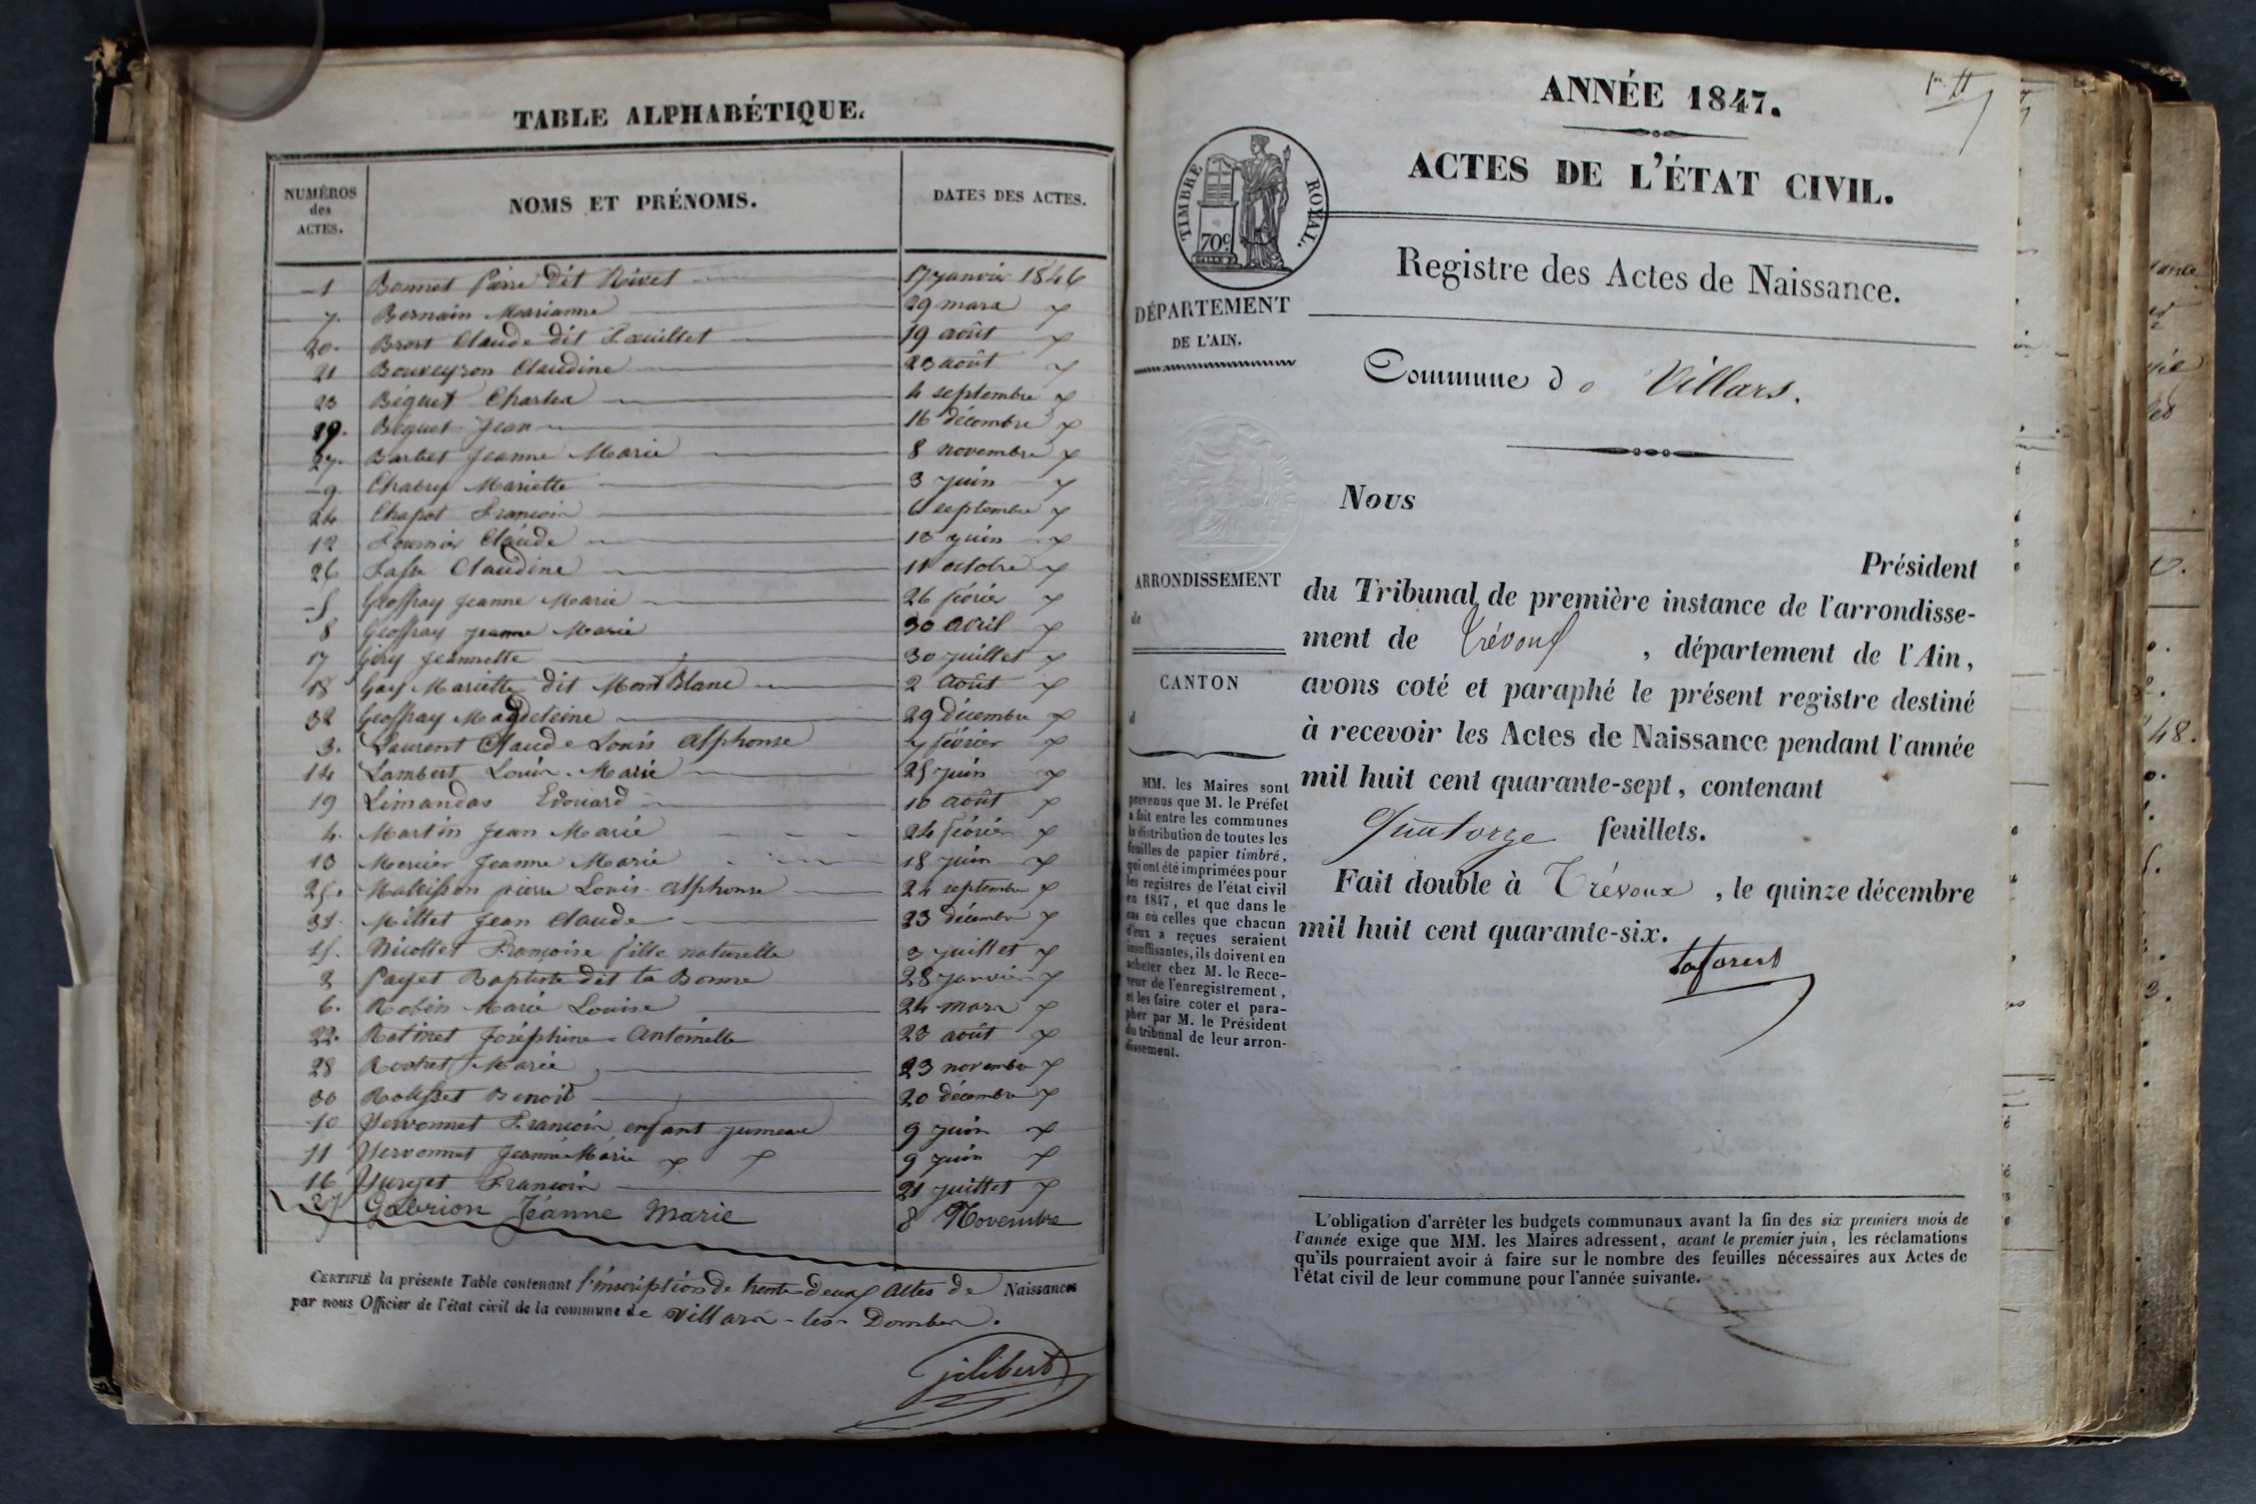 TABLE ALPHABÉTIQUE.
NUMÉROS des ACTES. NOMS ET PRÉNOMS. DATES DES ACTES.
1 Bonnet Pierre dit Rivet 17 janvier 1846
7. Bernain Marianne 29 mars
20. Brost Claude dit 19 août
21 Bouveyron Claudine 23 août
23 Béguet Charles 4 septembre
Béguet Jean 16 décembre
27. Barbet Jeanne Marie 8 novembre
9. Mariette 3 juin
24 Chapot François 6 septembre
12 Fournier Claude 13 juin
26 Claudine 11 octobre
5 Geoffray Jeanne Marie 26 février
8 Geoffray Jeanne Marie 30 avril
17 Jeannette 30 juillet
18 Gay Mariette dit Mont Blanc 2 août
32 Geoffray Magdeleine 29 décembre
3. Laurent Claude Louis Alphonse 7 février
14 Lambert Louis Marie 25 juin
19 Limandas Edouard 10 août
4. Martin Jean Marie 24 février
13 Mercier Jeanne Marie 18 juin
25. pierre Louis alphonse 24 septembre
31. Millet Jean Claude 23 décembre
15. Nicollet Françoise fille naturelle 3 juillet
2 Payet Baptiste dit la Bonne 28 janvier
6. Robin Marie Louise 24 mars
22. Ratinet Joséphine Antoinette 23 août
28 Marie 23 novembre
30 Benoit 20 décembre
10 Yvervonnet François enfant jumeau 9 juin
11 Yvervonnet Jeanne Marie 9 juin
16 François 21 juillet
27 Gabrion Jeanne Marie 8 Novembre
CERTIFIÉ la présente Table contenant l'inscription de trente deux Actes de Naissances
par nous Officier de l'état civil de la commune de Villars-les-Dombes.
jilibert
1er ff
ANNÉE 1847.
ACTES DE L'ÉTAT CIVIL.
TIMBRE ROYAL.
70c
Registre des Actes de Naissance.
DÉPARTEMENT
DE L'AIN.
Commune de Villars.
Nous
Président
du Tribunal de première instance de l'arrondisse-
ment de Trévoux , département de l'Ain,
avons coté et paraphé le présent registre destiné
à recevoir les Actes de Naissance pendant l'année
mil huit cent quarante-sept, contenant
Quatorze feuillets.
Fait double à Trévoux , le quinze décembre
mil huit cent quarante-six.
ARRONDISSEMENT
de
CANTON
d
MM. les Maires sont
prévenus que M. le Préfet
a fait entre les communes
la distribution de toutes les
feuilles de papier timbré,
qui ont été imprimées pour
les registres de l'état civil
en 1847, et que dans le
cas où celles que chacun
d'eux a reçues seraient
insuffisantes, ils doivent en
acheter chez M. le Rece-
veur de l'enregistrement,
et les faire coter et para-
pher par M. le Président
du tribunal de leur arron-
dissement.
L'obligation d'arrêter les budgets communaux avant la fin des six premiers mois de
l'année exige que MM. les Maires adressent, avant le premier juin, les réclamations
qu'ils pourraient avoir à faire sur le nombre des feuilles nécessaires aux Actes de
l'état civil de leur commune pour l'année suivante.